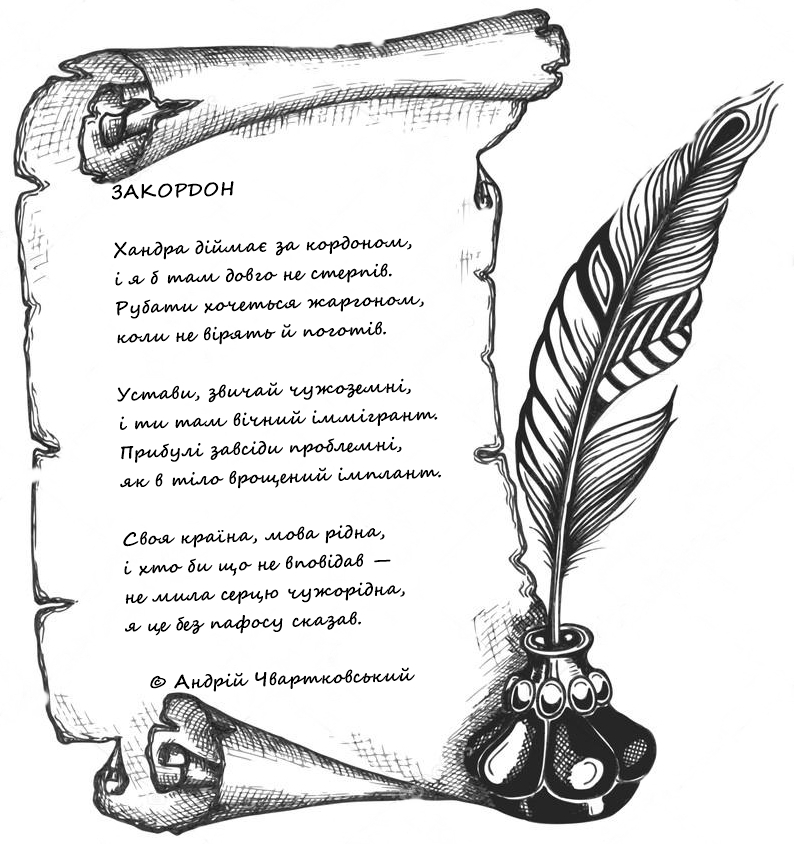 ЗАКОРДОН
Хандра діймає за кордоном,
і я б там довго не стерпів.
Рубати хочеться жаргоном,
коли не вірять й поготів.
Устави, звичай чужоземні,
і ти там вічний іммігрант.
Прибулі завсіди проблемні,
як в тіло врощений імплант.
Своя країна, мова рідна,
і хто би що не вповідав —
не мила серцю чужорідна,
я це без пафосу сказав.
© Андрій Чвартковський